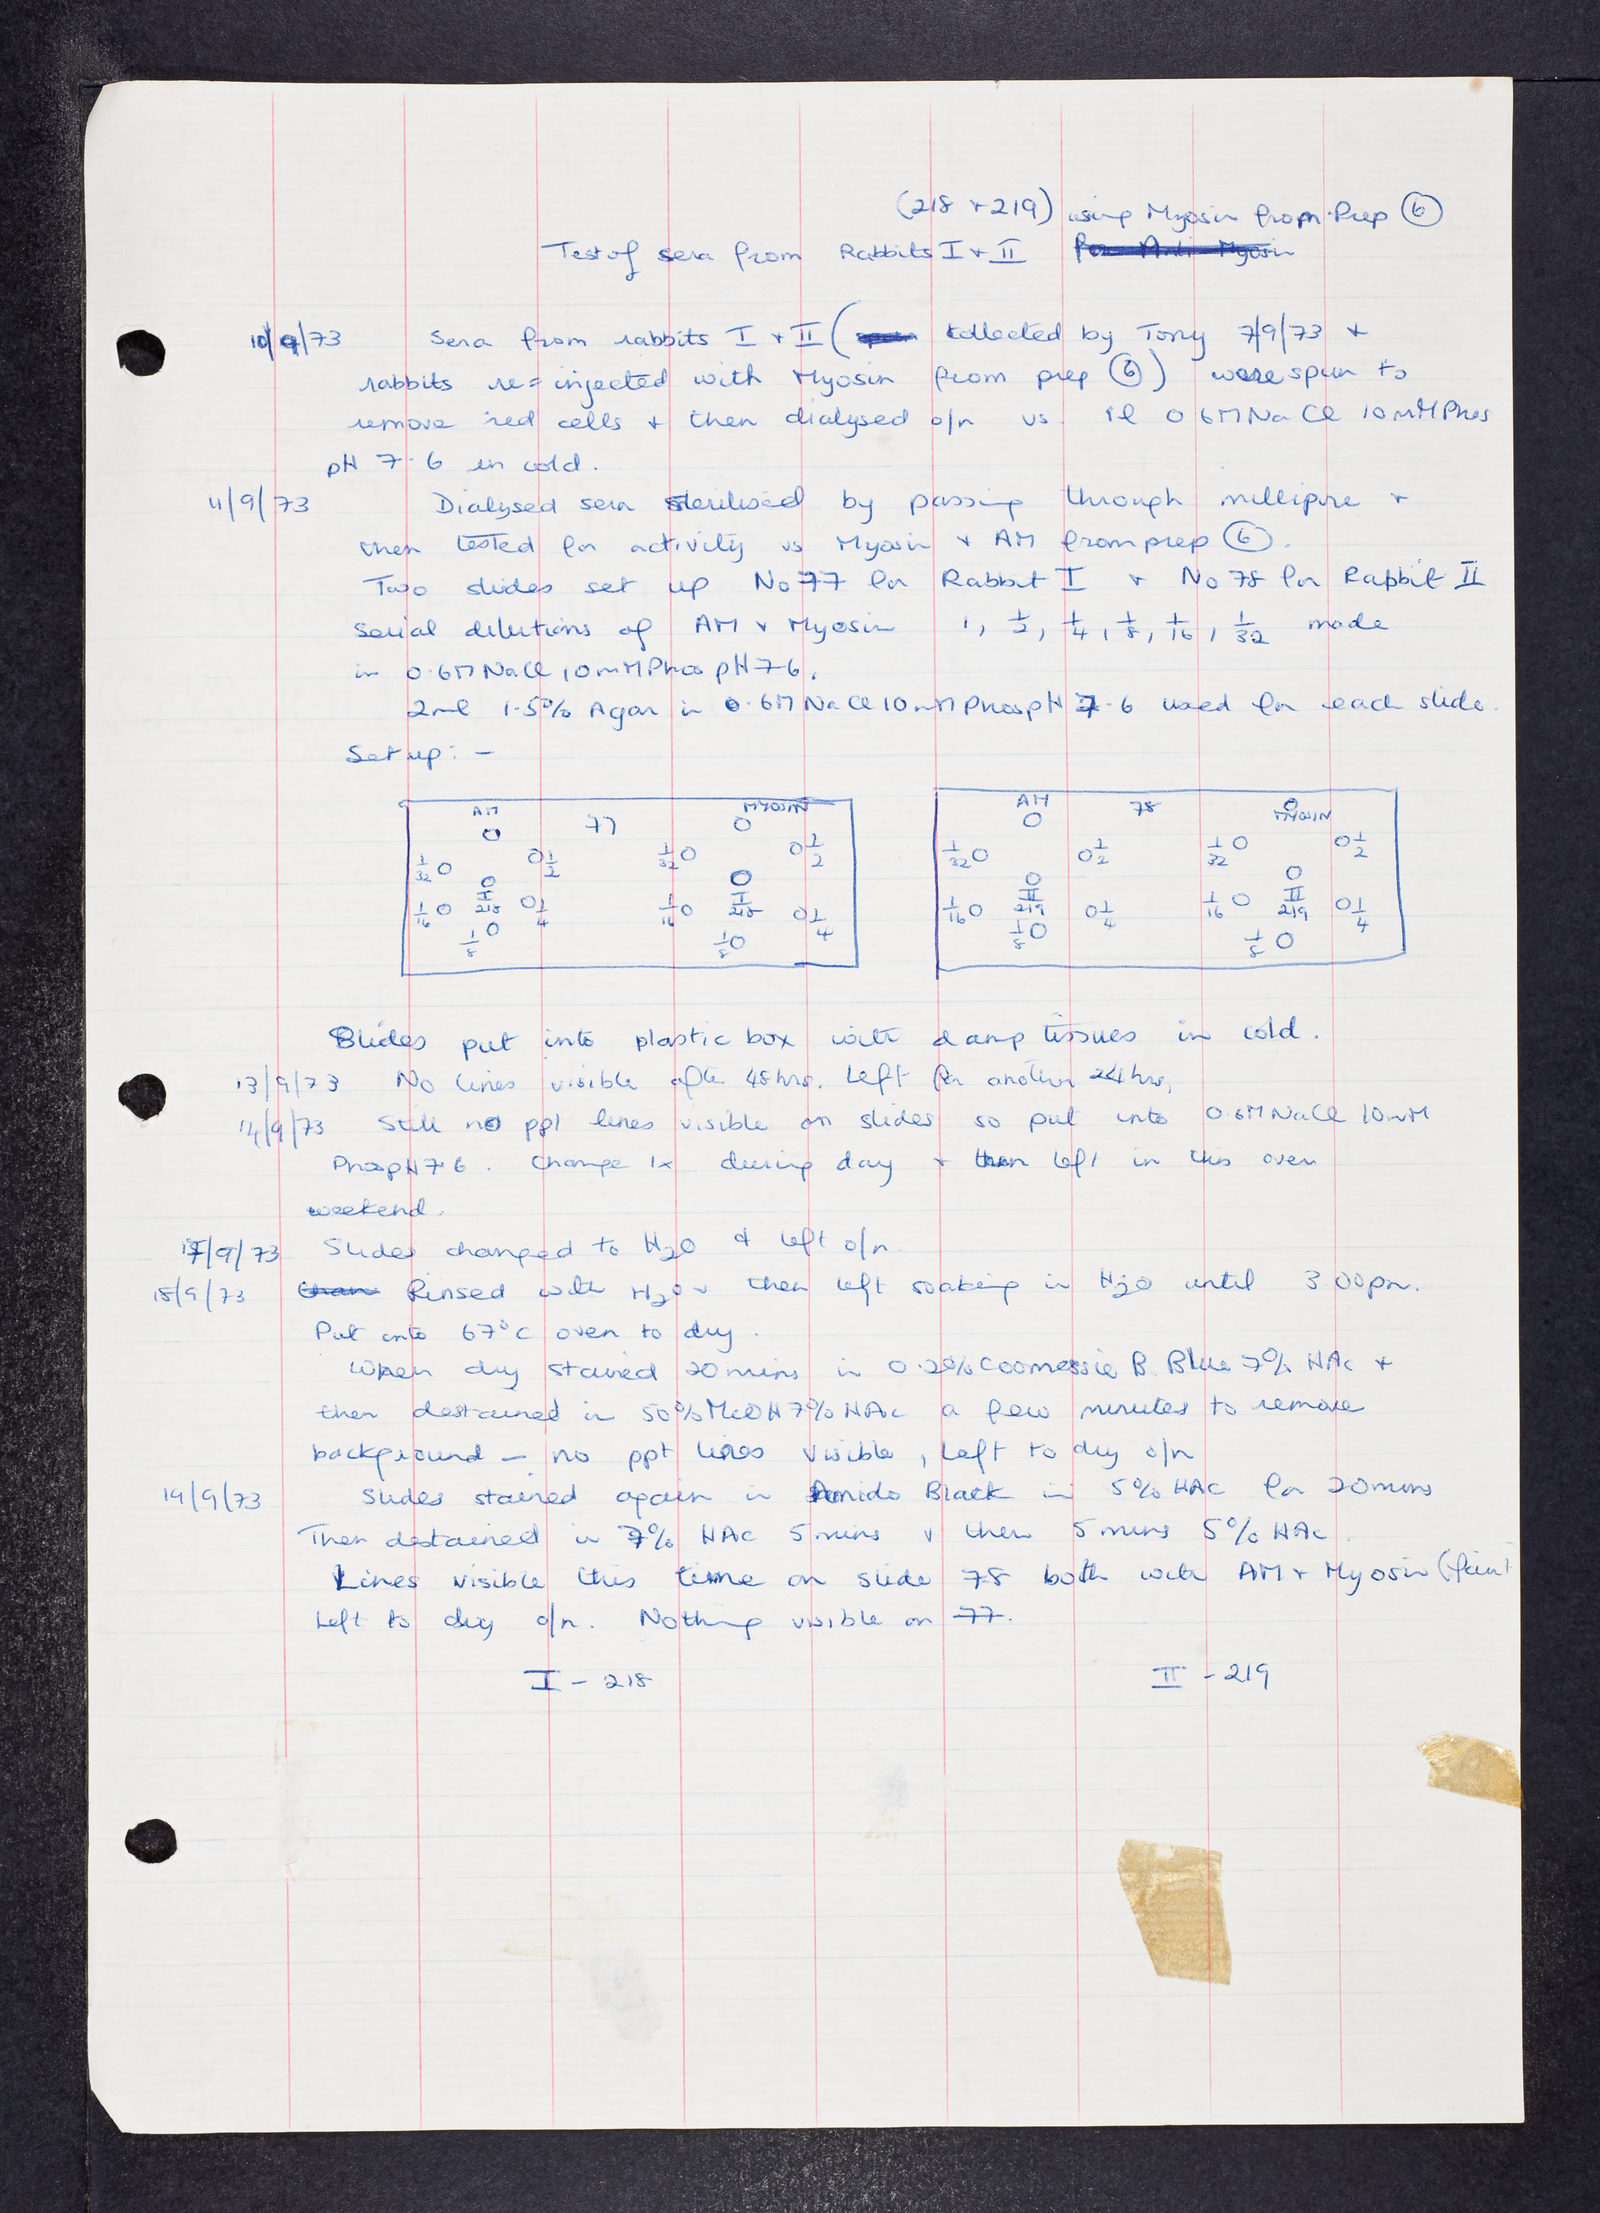 (218 + 219) using Myosin from Prep ⑥
Test of sera from Rabbits I + II for Anti Myosin
10/9/73 Sera from rabbits I + II ( collected by Tony 7/9/73 +
rabbits re-injected with Myosin from prep ⑥) were spun to
remove red cells + then dialysed o/n vs 1l 0.6M NaCl 10mM Phos
pH 7.6 in cold.
11/9/73 Dialysed sera sterilised by passing through millipore +
then tested for activity vs Myosin + AM from prep ⑥.
Two slides set up No 77 for Rabbit I + No 78 for Rabbit II
Serial dilutions of AM + Myosin 1, 1/2, 1/4, 1/8, 1/16, 1/32 made
in 0.6M NaCl 10mM Phos pH 7.6.
2ml 1.5% Agar in 0.6M NaCl 10mM Phos pH 7.6 used for each slide.
Set up: -
AM 77 MYOSIN
1/32 1/2 1/32 1/2
1/16 I 218 1/4 1/16 I 218 1/4
1/8 1/8
AM 78 MYOSIN
1/32 1/2 1/32 1/2
1/16 II 219 1/4 1/16 II 219 1/4
1/8 1/8
Slides put into plastic box with damp tissues in cold.
13/9/73 No lines visible after 48hrs. Left for another 24hrs,
14/9/73 Still no ppt lines visible on slides so put into 0.6M NaCl 10mM
Phos pH 7.6. Change 1x during day + then left in this over
weekend.
17/9/73 Slides changed to H2O & left o/n.
18/9/73 Rinsed with H2O + then left soaking in H2O until 3.00pm.
Put into 67°C oven to dry.
When dry stained 20 mins in 0.2% Coomessie B. Blue 7% HAc +
then destained in 50% MeOH 7% HAc a few minutes to remove
background - no ppt lines visible, left to dry o/n
19/9/73 Slides stained again in Amido Black in 5% HAc for 20 mins
Then destained in 7% HAc 5 mins + then 5 mins 5% HAc.
Lines visible this time on slide 78 both with AM + Myosin (faint
Left to dry o/n. Nothing visible on 77.
I - 218 II - 219